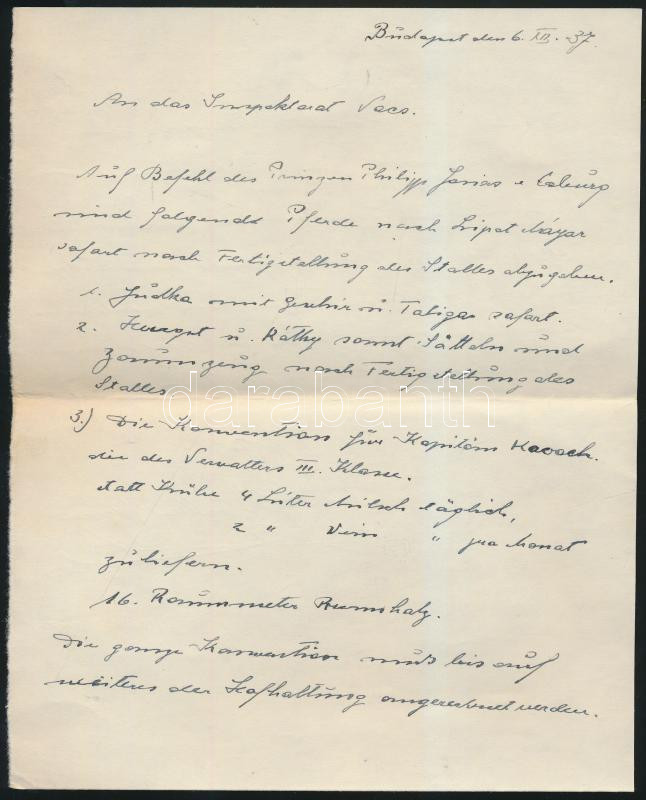 Budapest den 6. XII. -37.
An das Inspektorat Vacs.
Auf Befehl des Prinzen Philipp Josias v Coburg
sind folgende Pferde nach Lipot Mayor
sofort nach Fertigstellung des Stalles abzugeben.
1. Judka mit Geschir u. Taliga sofort.
2. u. Ráthy samt Sätteln und
Zaumzeug nach Fertigstellung des
Stalles
darabanth
3.) Die Konvention für Kapitän
die des Verwalters III. Klasse.
statt Kühe 4 Liter Milch täglich,
2 " Wein " pro Monat
zu liefern.
16. Raummeter Brennholz.
Die ganze Konvention muß bis auf
weiteres der Hofhaltung angerechnet werden.